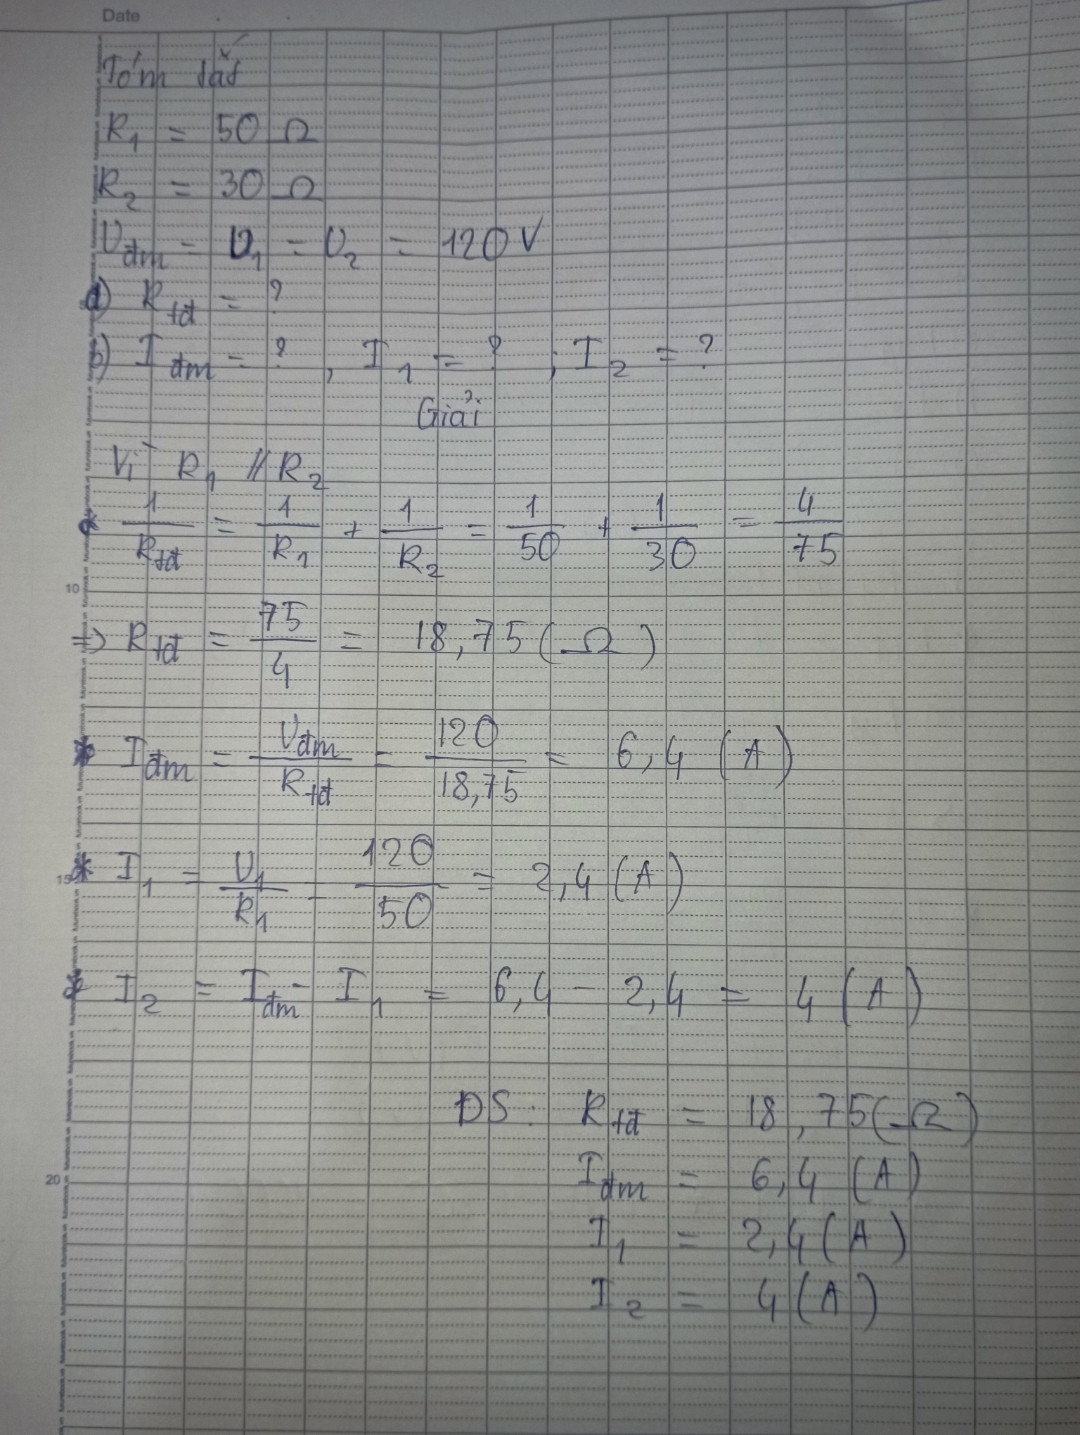 Date
Tóm tắt
R₁ = 50 Ω
R₂ = 30 Ω
Uđm = U₁ = U₂ = 120 V
a) Rtđ = ?
b) Iđm = ? , I₁ = ? ; I₂ = ?
Giải
Vì R₁ // R₂
* 1/Rtđ = 1/R₁ + 1/R₂ = 1/50 + 1/30 = 4/75
10
=> Rtđ = 75/4 = 18,75 (Ω)
* Iđm = Uđm/Rtđ = 120/18,75 = 6,4 (A)
15
* I₁ = U₁/R₁ = 120/50 = 2,4 (A)
* I₂ = Iđm - I₁ = 6,4 - 2,4 = 4 (A)
ĐS: Rtđ = 18,75 (Ω)
20
Iđm = 6,4 (A)
I₁ = 2,4 (A)
I₂ = 4 (A)